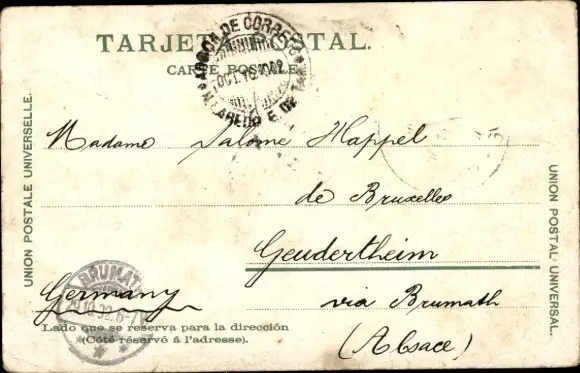 TARJETA POSTAL.
CARTE POSTALE
OCT 1902
N. LAREDO E. DE TAM
Madame Salomé Happel
de Bruxelles
Geudertheim
Germany
via Brumath
(Alsace)
BRUMATH
Lado que se reserva para la dirección
(Côté réservé á l'adresse).
UNION POSTALE UNIVERSELLE.
UNION POSTAL UNIVERSAL.